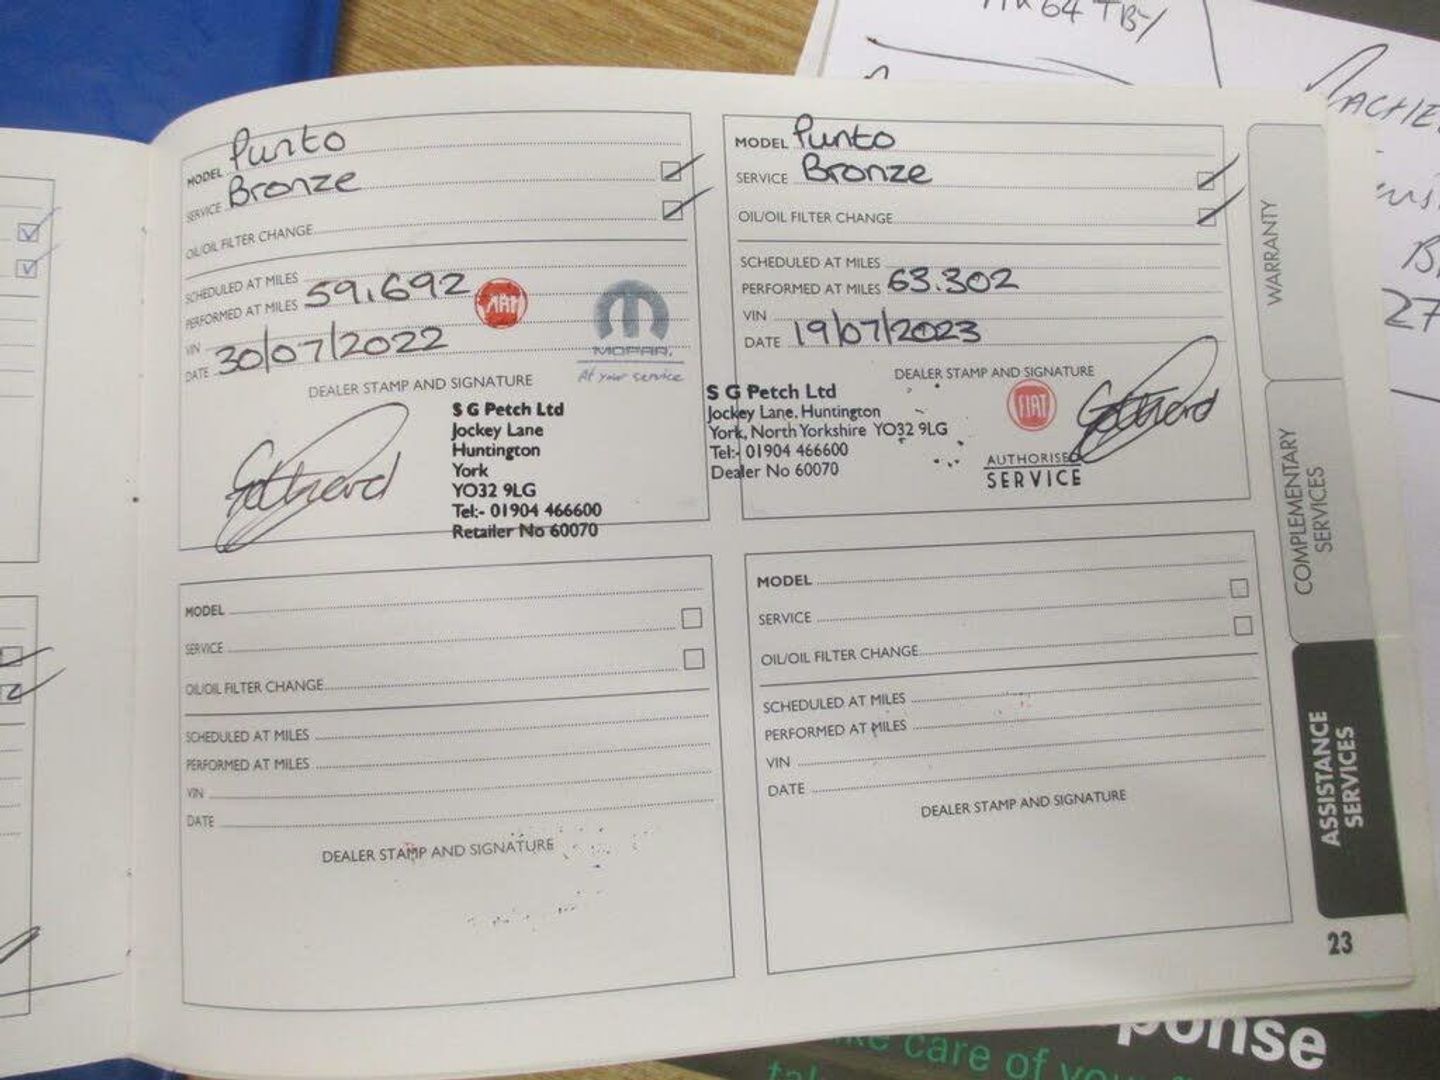 64 TBY
MODEL Punto
SERVICE Bronze
OIL/OIL FILTER CHANGE
SCHEDULED AT MILES
PERFORMED AT MILES 59,692
VIN
DATE 30/07/2022
FIAT
MOPAR.
At your service
DEALER STAMP AND SIGNATURE
S G Petch Ltd
Jockey Lane
Huntington
York
YO32 9LG
Tel:- 01904 466600
Retailer No 60070
Gotherd
MODEL Punto
SERVICE Bronze
OIL/OIL FILTER CHANGE
SCHEDULED AT MILES
PERFORMED AT MILES 63.302
VIN
DATE 19/07/2023
DEALER STAMP AND SIGNATURE
S G Petch Ltd
Jockey Lane, Huntington
York, North Yorkshire YO32 9LG
Tel:- 01904 466600
Dealer No 60070
FIAT
AUTHORISED
SERVICE
Gotherd
MODEL
SERVICE
OIL/OIL FILTER CHANGE
SCHEDULED AT MILES
PERFORMED AT MILES
VIN
DATE
DEALER STAMP AND SIGNATURE
MODEL
SERVICE
OIL/OIL FILTER CHANGE
SCHEDULED AT MILES
PERFORMED AT MILES
VIN
DATE
DEALER STAMP AND SIGNATURE
WARRANTY
COMPLEMENTARY
SERVICES
ASSISTANCE
SERVICES
23
27
ponse
care of